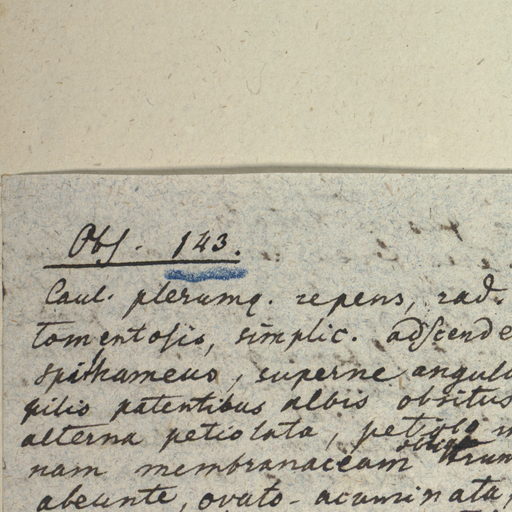 Obs. 143.
Caul. plerumq. repens, rad.
tomentosis, simplic. adscende
spithameus, superne angula
pilis patentibus albis obsitus
alterna petiolata, petiolo
nam membranaceam
abeunte, ovato-acuminata,